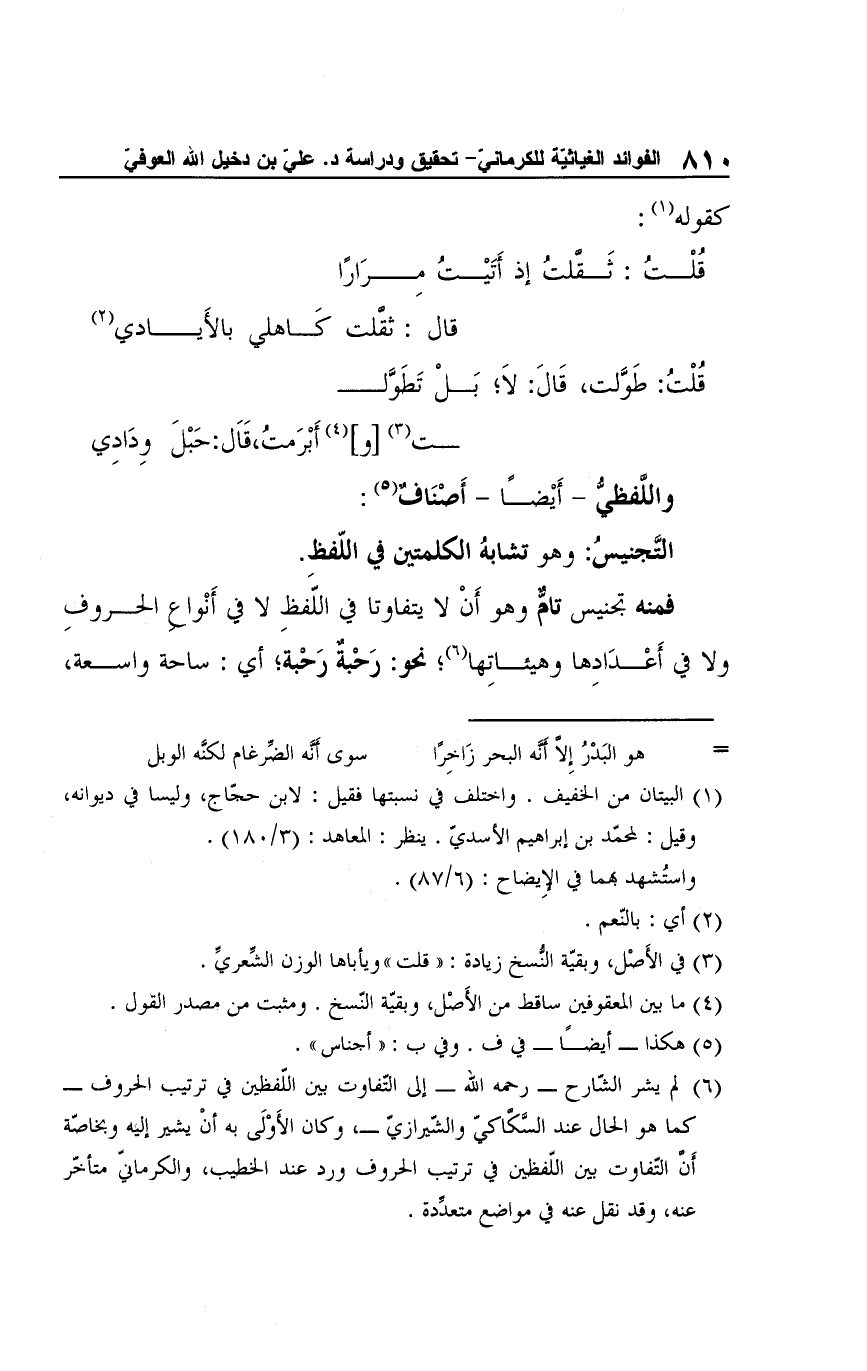 ٨١٠ الفوائد الغياثيّة للكرمانيّ- تحقيق ودراسة د. عليّ بن دخيل الله العوفيّ
كقوله(١) :
قُلْـــتُ : ثَـــقَّلتُ إذ أَتَيْـــتُ مِـــــرَارًا
قال : ثقَّلت كَـــاهلي بالأَيـــــادي(٢)
قُلْتُ: طَوَّلت، قَالَ: لاَ؛ بَـــلْ تَطَوَّلـــــ
ـــت(٣) [و](٤) أَبْرَمتُ،قَال:حَبْلَ وِدَادِي
واللَّفظيُّ - أَيْضـــاً - أَصْنَافٌ(٥) :
التَّجنيسُ: وهو تشابهُ الكلمتين في اللّفظِ.
فمنه تجنيس تامٌّ وهو أَنْ لا يتفاوتا في اللّفظِ لا في أَنْواعِ الحـــروفِ
ولا في أَعْـــدَادِها وهيئـــاتِها(٦)؛ نحو: رَحْبةٌ رَحْبة؛ أي : ساحة واســـعة،
= هو البَدْرُ إِلاَّ أَنَّه البحر زَاخِرًا سوى أَنَّه الضِّرغام لكنَّه الوبل
(١) البيتان من الخفيف . واختلف في نسبتها فقيل : لابن حجّاج، وليسا في ديوانه،
وقيل : لمحمّد بن إبراهيم الأسديّ . ينظر : المعاهد : (١٨٠/٣) .
واستُشهد بهما في الإِيضاح : (٨٧/٦) .
(٢) أي : بالنّعم .
(٣) في الأَصْل، وبقيّة النُّسخ زيادة : «قلت» ويأباها الوزن الشِّعريِّ .
(٤) ما بين المعقوفين ساقط من الأَصْل، وبقيّة النّسخ . ومثبت من مصدر القول .
(٥) هكذا ــ أيضـــاً ــ في ف . وفي ب : «أجناس» .
(٦) لم يشر الشّارح ــ رحمه الله ــ إلى التّفاوت بين اللّفظين في ترتيب الحروف ــ
كما هو الحال عند السَّكّاكيّ والشّيرازيّ ــ، وكان الأَوْلَى به أنْ يشير إليه وبخاصّة
أنَّ التّفاوت بين اللّفظين في ترتيب الحروف ورد عند الخطيب، والكرمانيّ متأخّر
عنه، وقد نقل عنه في مواضع متعدِّدة .